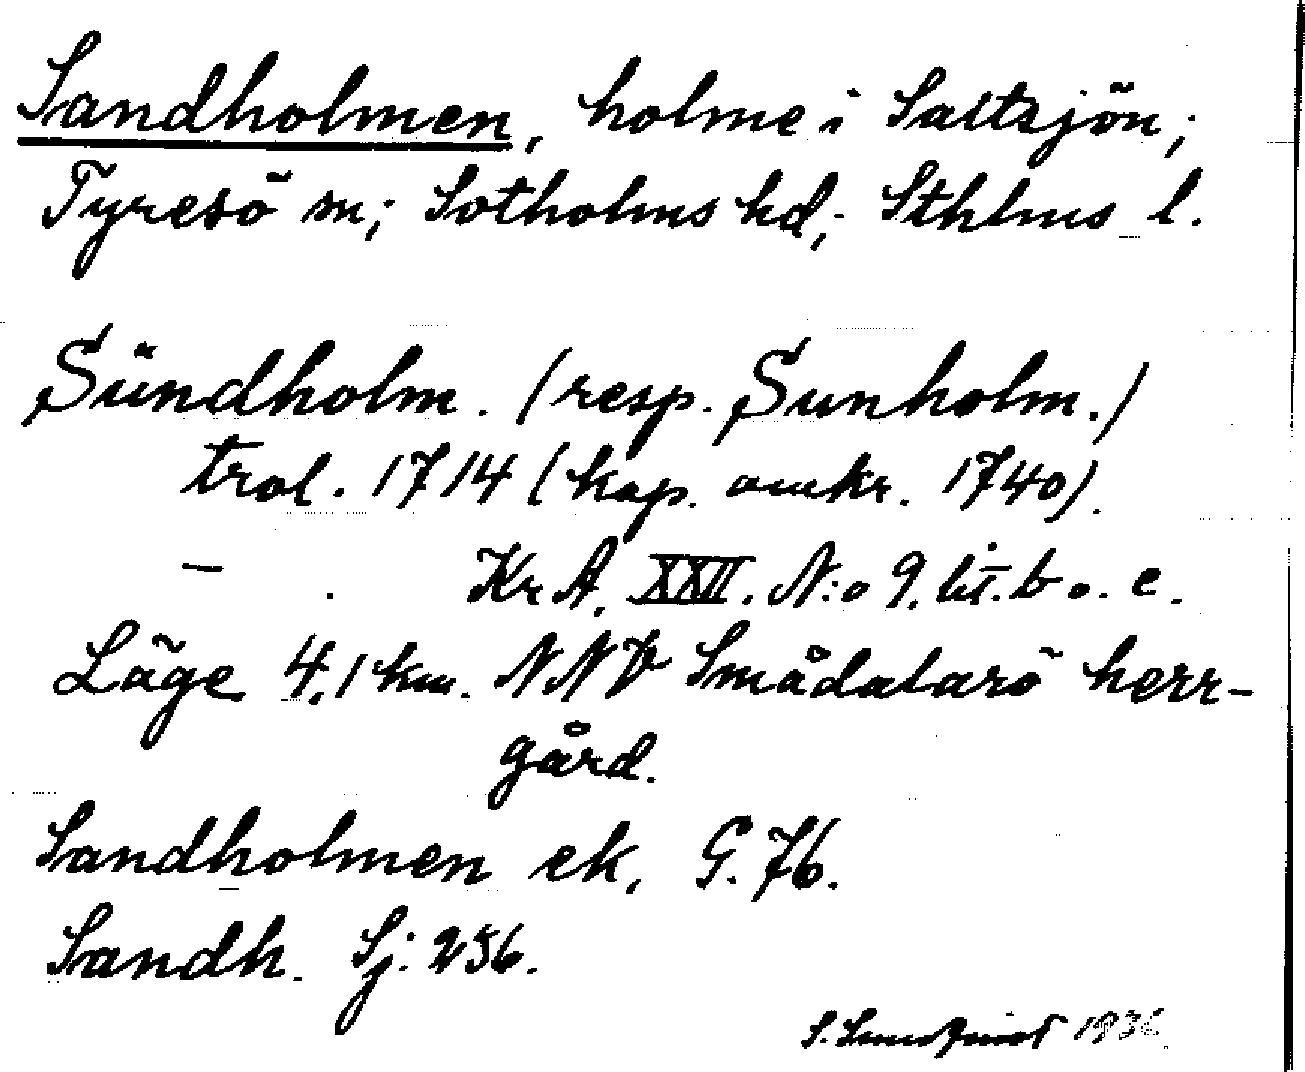 Sandholmen, holme i Saltsjön;
Tyresö sn; Sotholms hd; Sthlms l.
Sündholm. (resp. Sunholm.)
trol. 1714 (kop. omkr. 1740).
— . Kr A. XXII. N:o 9. lit. b o. c.
Läge 4,1 km. NNV Smådalarö herr-
gård.
Sandholmen ek. G. 76.
Sandh. Sj: 256.
S. Sundqvist 1936.